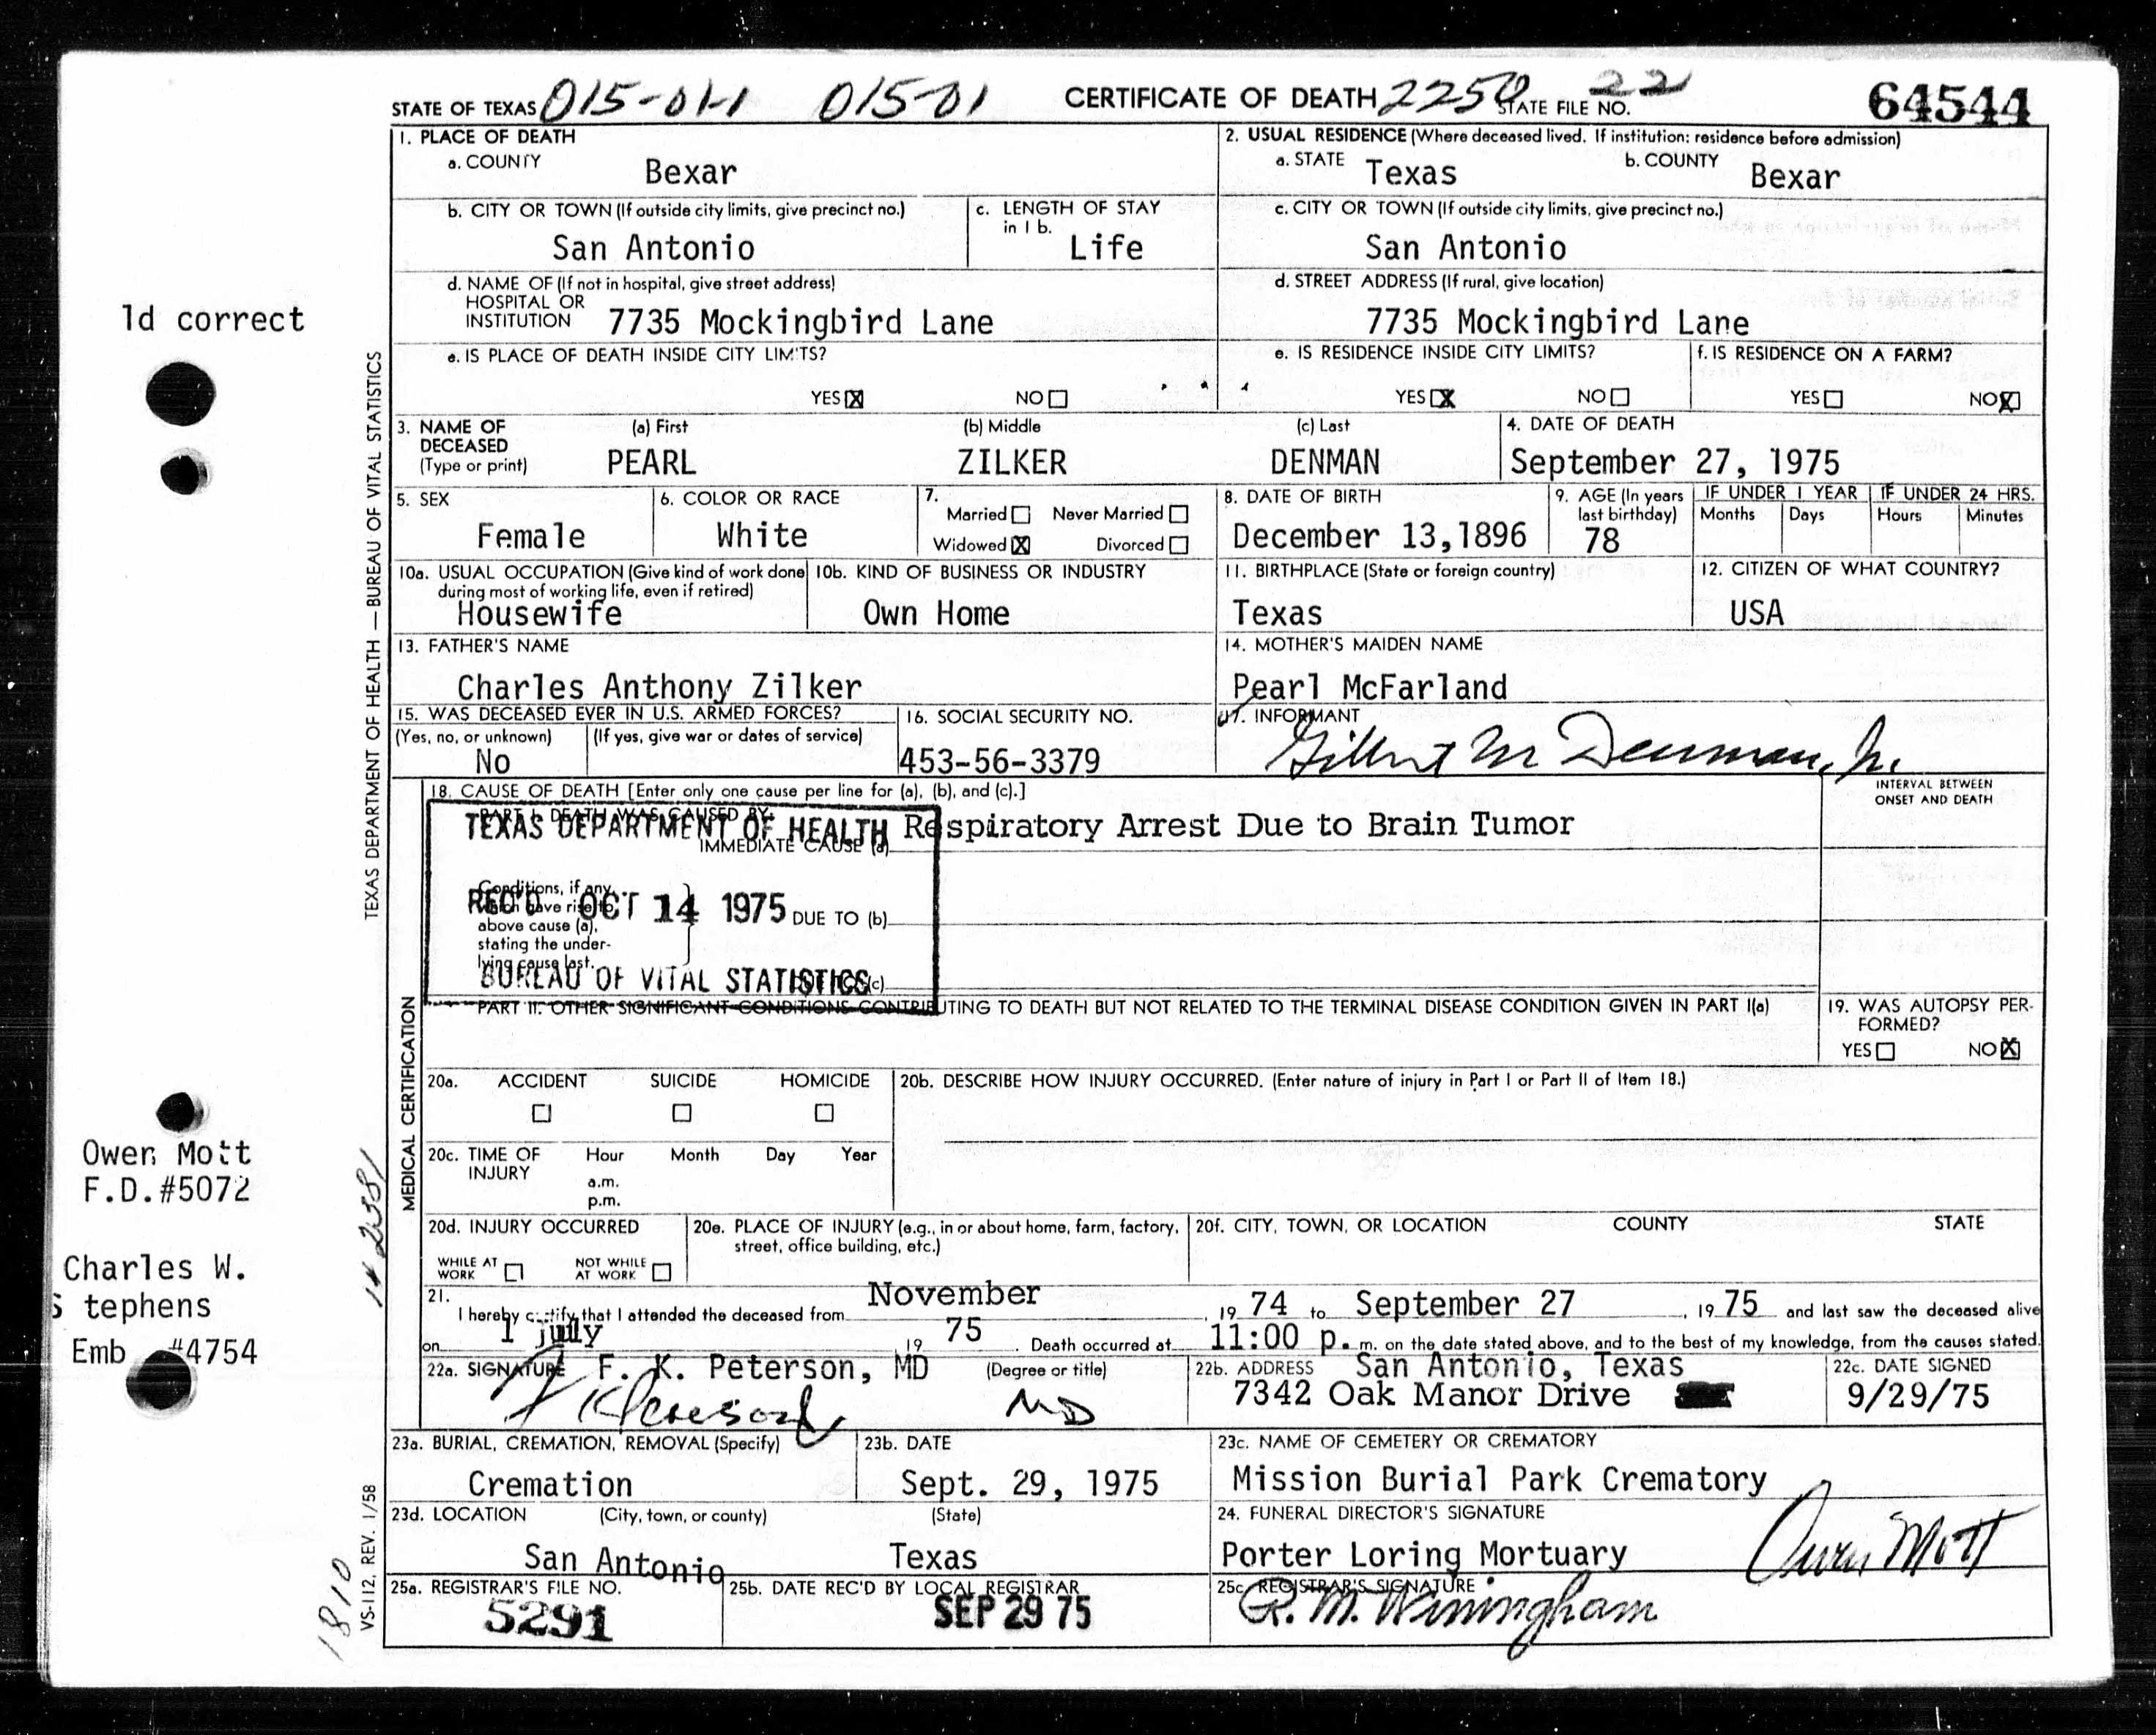 STATE OF TEXAS 015-01-1 015-01 CERTIFICATE OF DEATH 2250 STATE FILE NO. 22 64544
1. PLACE OF DEATH
a. COUNTY Bexar
2. USUAL RESIDENCE (Where deceased lived. If institution: residence before admission)
a. STATE Texas b. COUNTY Bexar
b. CITY OR TOWN (If outside city limits, give precinct no.)
San Antonio
c. LENGTH OF STAY in 1 b.
Life
c. CITY OR TOWN (If outside city limits, give precinct no.)
San Antonio
1d correct
d. NAME OF (If not in hospital, give street address)
HOSPITAL OR
INSTITUTION 7735 Mockingbird Lane
d. STREET ADDRESS (If rural, give location)
7735 Mockingbird Lane
e. IS PLACE OF DEATH INSIDE CITY LIMITS?
YES X NO
e. IS RESIDENCE INSIDE CITY LIMITS?
YES X NO
f. IS RESIDENCE ON A FARM?
YES NO X
3. NAME OF DECEASED (Type or print)
(a) First (b) Middle (c) Last
PEARL ZILKER DENMAN
4. DATE OF DEATH
September 27, 1975
5. SEX
Female
6. COLOR OR RACE
White
7.
Married Never Married
Widowed X Divorced
8. DATE OF BIRTH
December 13,1896
9. AGE (In years last birthday)
78
IF UNDER 1 YEAR IF UNDER 24 HRS.
Months Days Hours Minutes
10a. USUAL OCCUPATION (Give kind of work done during most of working life, even if retired)
Housewife
10b. KIND OF BUSINESS OR INDUSTRY
Own Home
11. BIRTHPLACE (State or foreign country)
Texas
12. CITIZEN OF WHAT COUNTRY?
USA
13. FATHER'S NAME
Charles Anthony Zilker
14. MOTHER'S MAIDEN NAME
Pearl McFarland
15. WAS DECEASED EVER IN U.S. ARMED FORCES?
(Yes, no, or unknown) (If yes, give war or dates of service)
No
16. SOCIAL SECURITY NO.
453-56-3379
17. INFORMANT
Gilbert M Denman, Jr.
TEXAS DEPARTMENT OF HEALTH — BUREAU OF VITAL STATISTICS
MEDICAL CERTIFICATION
18. CAUSE OF DEATH [Enter only one cause per line for (a), (b), and (c).]
INTERVAL BETWEEN ONSET AND DEATH
PART I. DEATH WAS CAUSED BY:
IMMEDIATE CAUSE (a) Respiratory Arrest Due to Brain Tumor
TEXAS DEPARTMENT OF HEALTH
REC'D OCT 14 1975
BUREAU OF VITAL STATISTICS
Conditions, if any,
which gave rise to
above cause (a),
stating the under-
lying cause last.
DUE TO (b)
(c)
PART II. OTHER SIGNIFICANT CONDITIONS CONTRIBUTING TO DEATH BUT NOT RELATED TO THE TERMINAL DISEASE CONDITION GIVEN IN PART I(a)
19. WAS AUTOPSY PER-
FORMED?
YES NO X
20a. ACCIDENT SUICIDE HOMICIDE
20b. DESCRIBE HOW INJURY OCCURRED. (Enter nature of injury in Part I or Part II of Item 18.)
20c. TIME OF INJURY
Hour Month Day Year
a.m.
p.m.
20d. INJURY OCCURRED
WHILE AT WORK NOT WHILE AT WORK
20e. PLACE OF INJURY (e.g., in or about home, farm, factory,
street, office building, etc.)
20f. CITY, TOWN, OR LOCATION COUNTY STATE
Owen Mott
F.D.#5072
Charles W.
S tephens
Emb #4754
21. I hereby certify that I attended the deceased from November 19 74 to September 27, 19 75 and last saw the deceased alive
on 1 july 19 75. Death occurred at 11:00 p. m. on the date stated above, and to the best of my knowledge, from the causes stated.
22a. SIGNATURE F. K. Peterson, MD (Degree or title)
F K Peterson MD
22b. ADDRESS San Antonio, Texas
7342 Oak Manor Drive
22c. DATE SIGNED
9/29/75
23a. BURIAL, CREMATION, REMOVAL (Specify)
Cremation
23b. DATE
Sept. 29, 1975
23c. NAME OF CEMETERY OR CREMATORY
Mission Burial Park Crematory
23d. LOCATION (City, town, or county) (State)
San Antonio Texas
24. FUNERAL DIRECTOR'S SIGNATURE
Porter Loring Mortuary Owen Mott
25a. REGISTRAR'S FILE NO.
5291
25b. DATE REC'D BY LOCAL REGISTRAR
SEP 29 75
25c. REGISTRAR'S SIGNATURE
R. M. Winingham
VS-112, REV. 1/58
1810